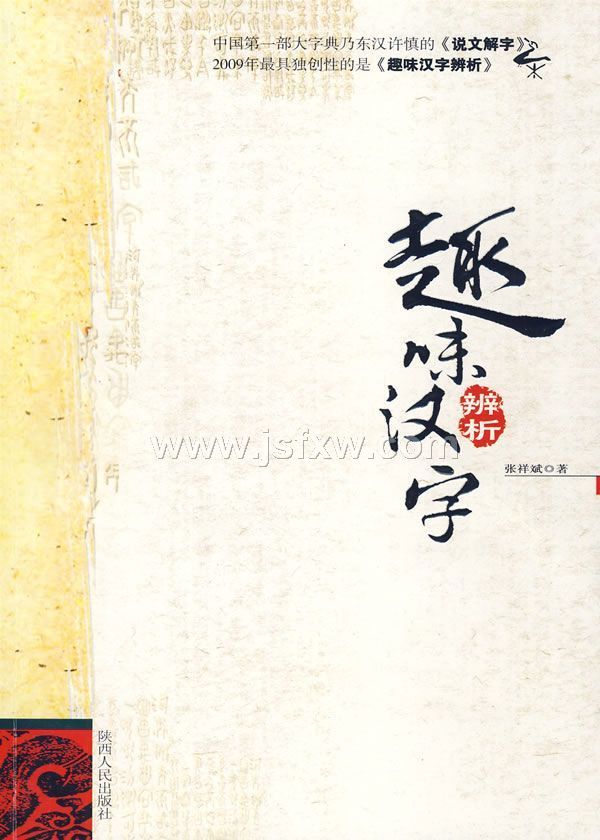 中国第一部大字典乃东汉许慎的《说文解字》
2009年最具独创性的是《趣味汉字辨析》
趣味汉字
辨析
张祥斌◎著
www.jsfxw.com
陕西人民出版社